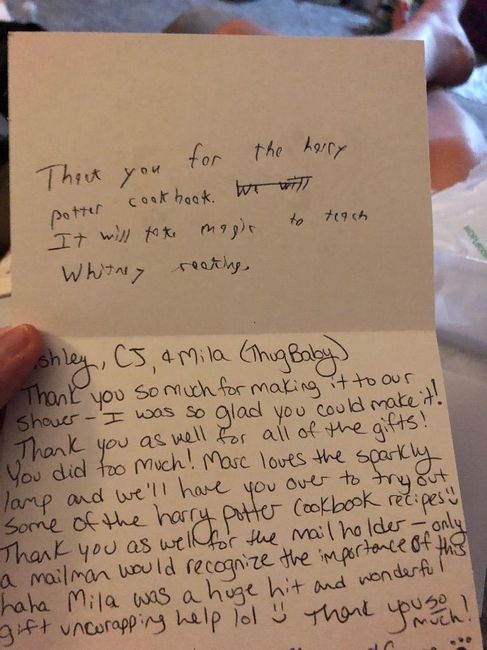 Thank you for the harry
potter cookbook. We will
It will take magic to teach
Whitney cooking.
shley, CJ, & Mila (ThugBaby)
Thank you so much for making it to our
shower - I was so glad you could make it!
Thank you as well for all of the gifts!
You did too much! Marc loves the sparkly
lamp and we'll have you over to try out
some of the harry potter cookbook recipes
Thank you as well for the mail holder - only
a mailman would recognize the importance of this
haha Mila was a huge hit and wonderful
gift unwrapping help lol Thank you so much!